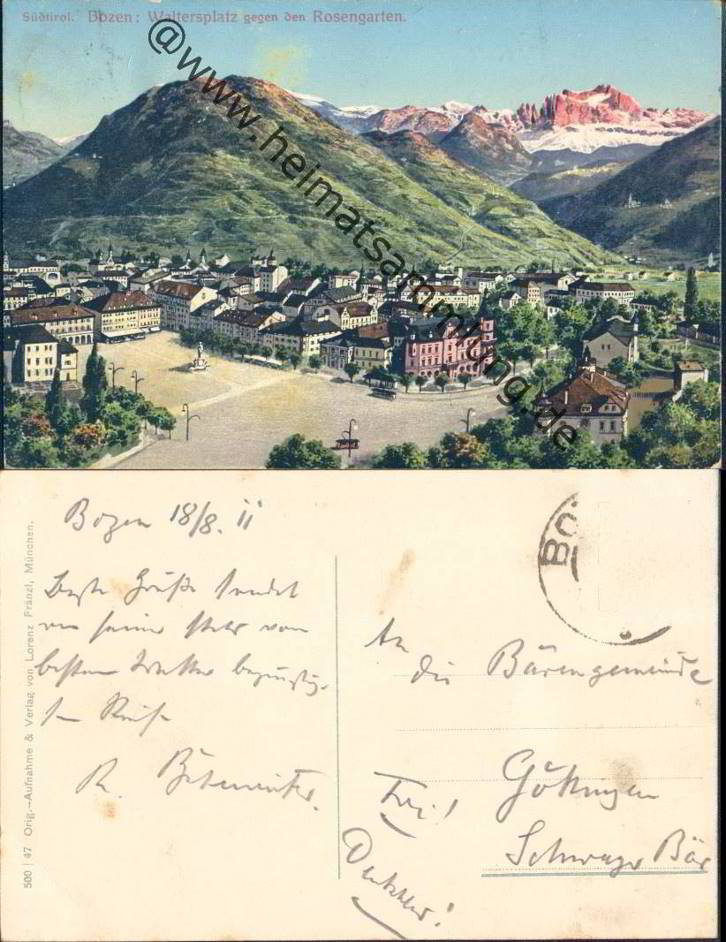 Südtirol. Bozen: Waltersplatz gegen den Rosengarten.
@www.heimatsammlung.de
500 | 47 Orig.-Aufnahme & Verlag von Lorenz Fränzl, München.
Bozen 18/8. 11
Beste Grüße sendet
von seiner stets vom
besten Wetter begünstig-
ten Reise
R.
BO
An
die Bärengemeinde
Göttingen
Schwarzer Bär
Frei!